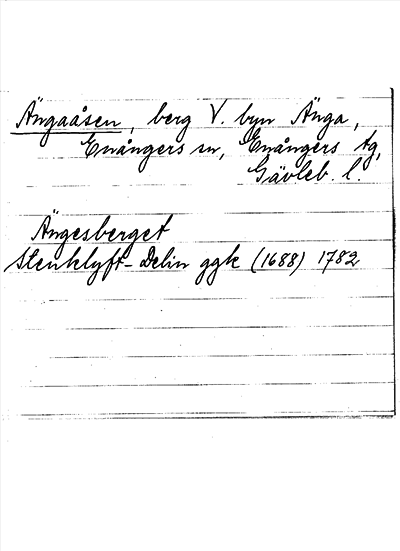 Ängaåsen, berg V. byn Änga,
Enångers sn, Enångers tg,
Gävleb. l.
Ängesberget
Stenklyft-Delin ggk (1688) 1782